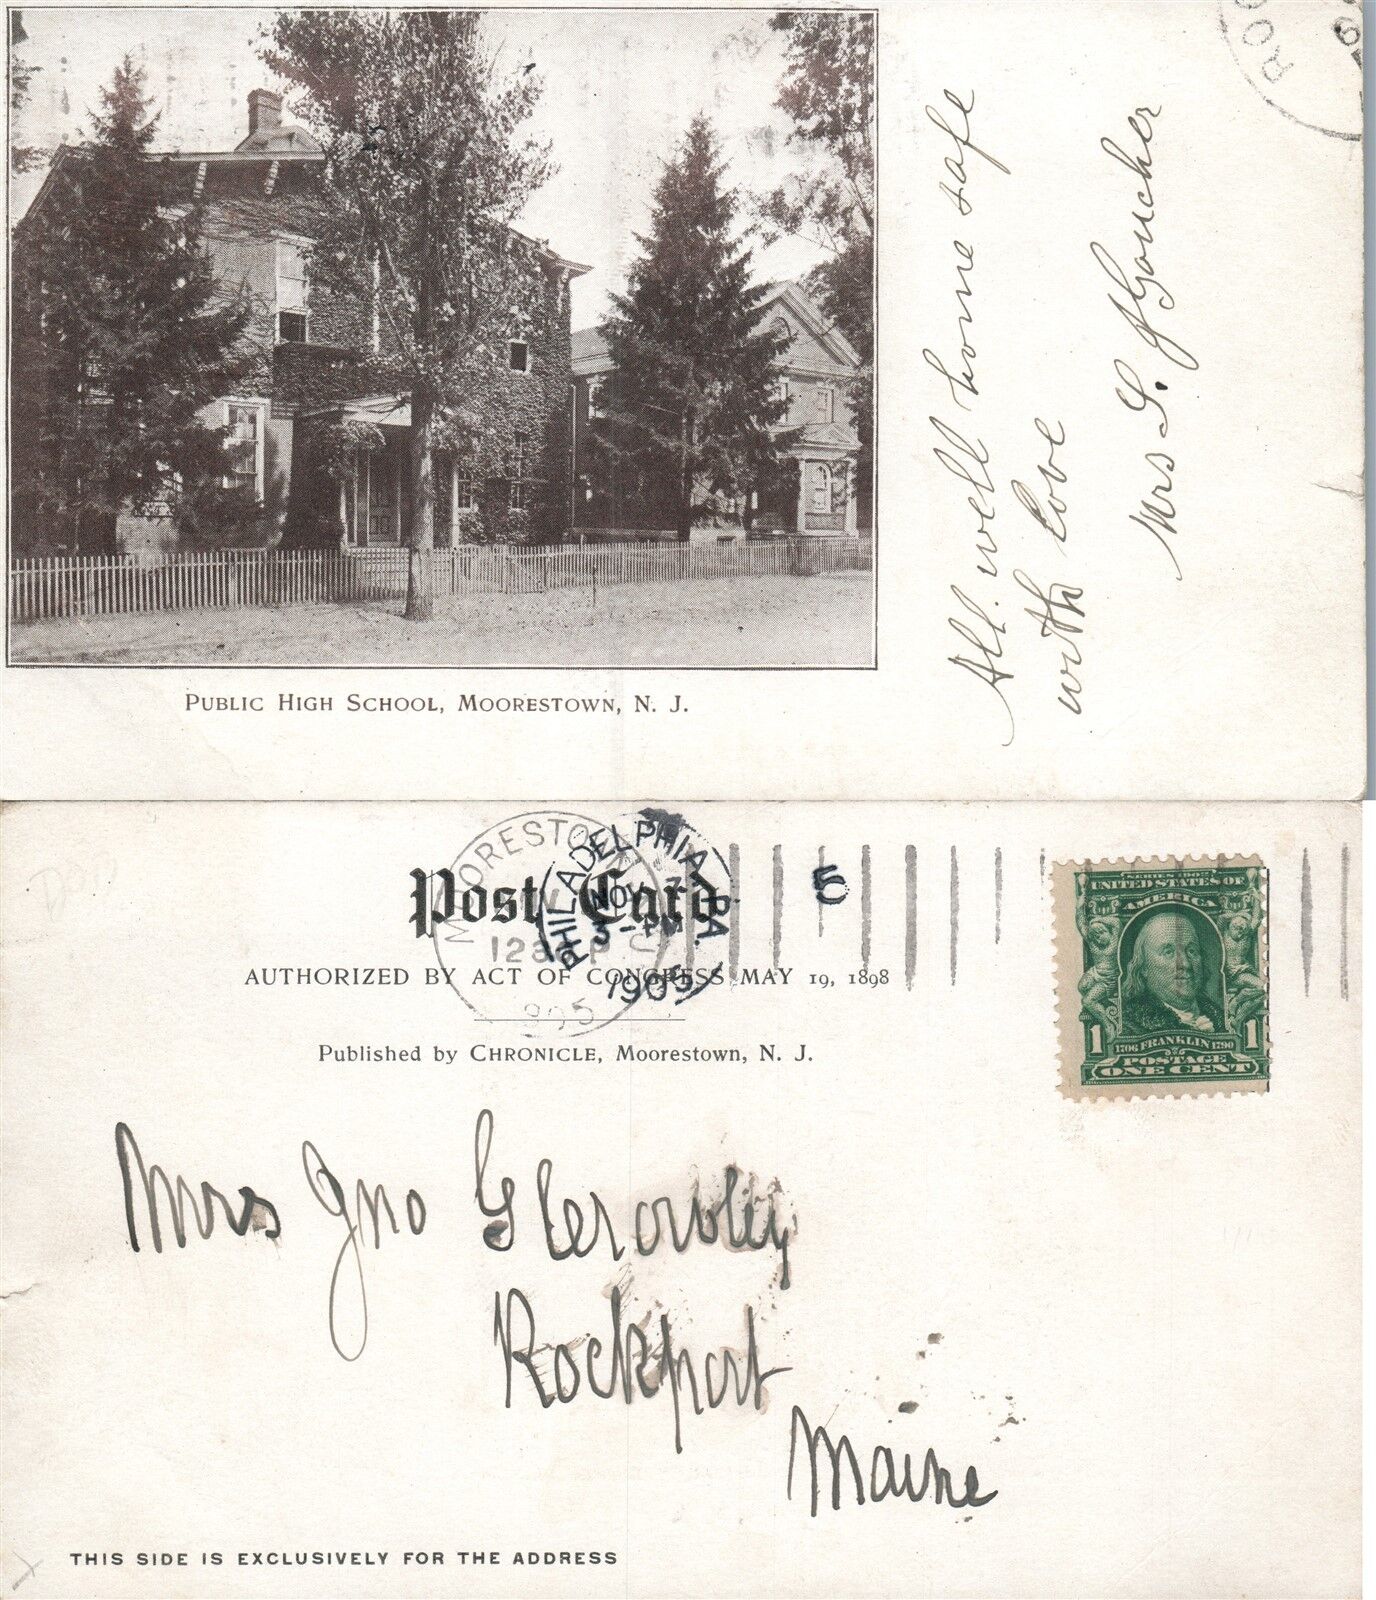 PUBLIC HIGH SCHOOL, MOORESTOWN, N. J.
All well home safe
with love
Mrs S. J Goucher
ROC
MOORESTO
1230 P
905
PHILADELPHIA, PA.
NOV 7
3 - PM
1905
5
Post Card
AUTHORIZED BY ACT OF CONGRESS MAY 19, 1898
Published by CHRONICLE, Moorestown, N. J.
SERIES 1902
UNITED STATES OF
AMERICA
1706 FRANKLIN 1790
1 POSTAGE 1
ONE CENT
Mrs Jno G
Rockport
Maine
THIS SIDE IS EXCLUSIVELY FOR THE ADDRESS